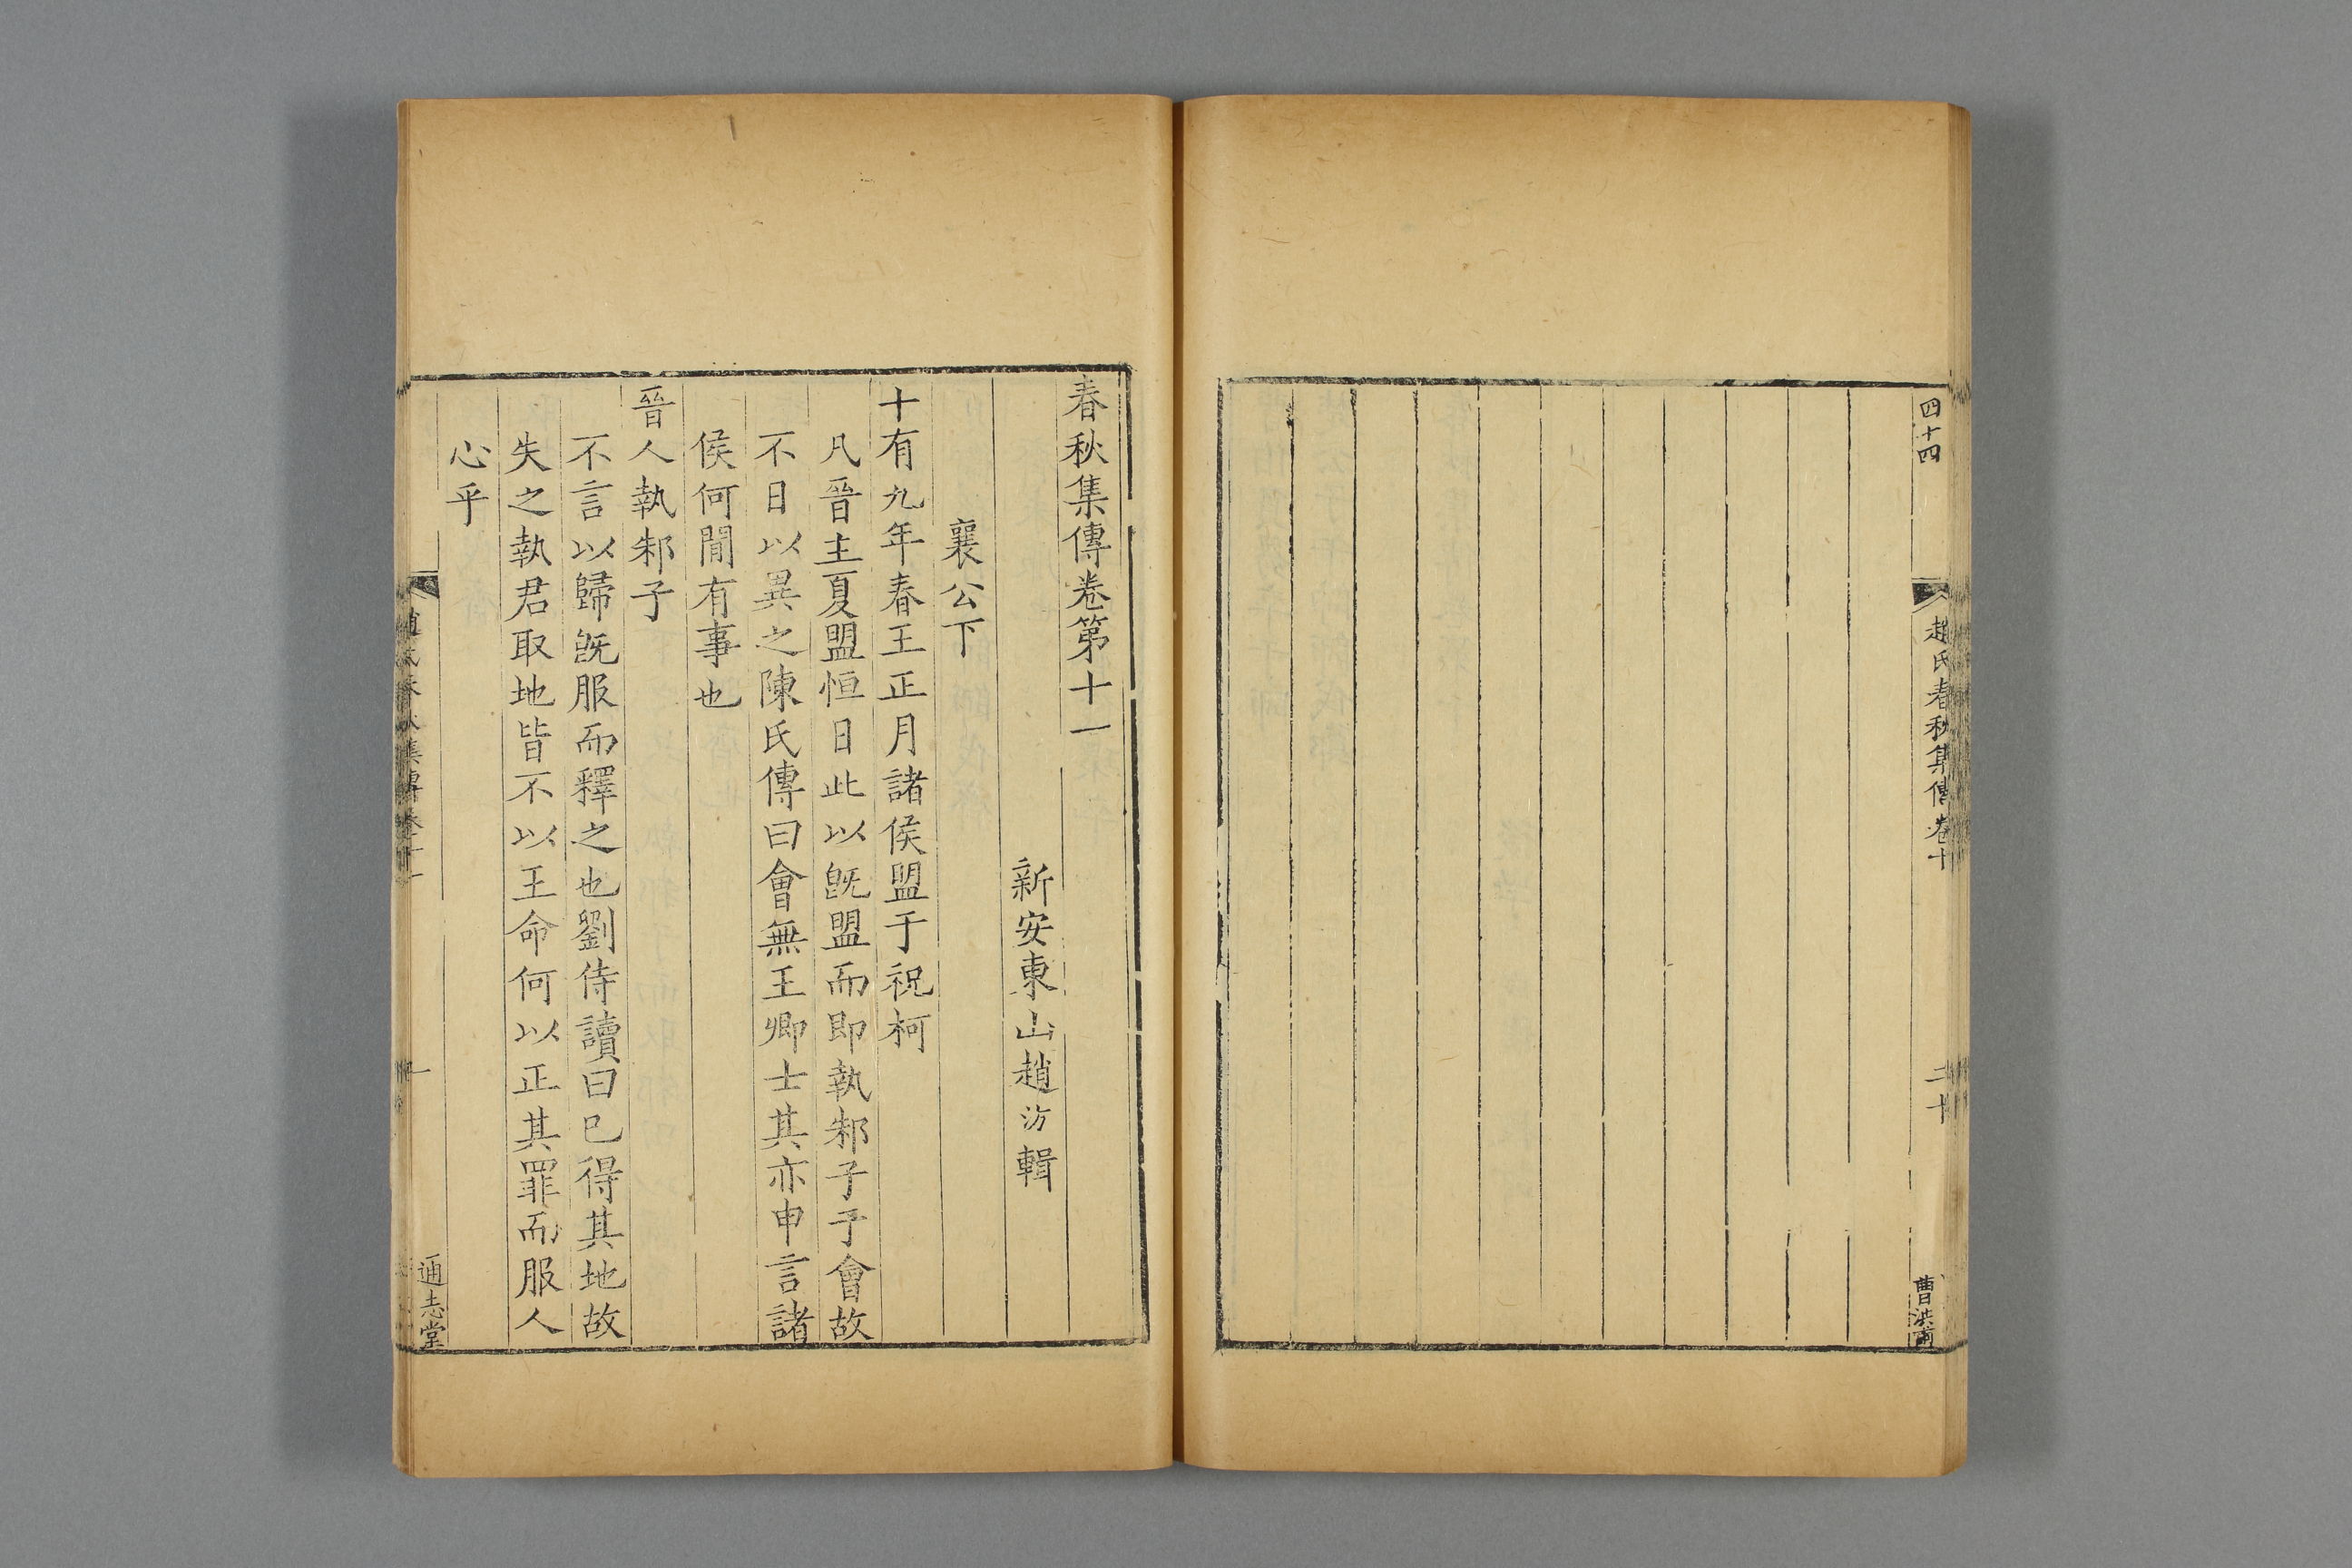 四十四
趙氏春秋集傳卷十
二十
曹洪甫
春秋集傳卷第十一
新安東山趙汸輯
襄公下
十有九年春王正月諸侯盟于祝柯
凡晉主夏盟恒日此以旣盟而即執邾子子會故
不日以異之陳氏傳曰會無王卿士其亦申言諸
侯何間有事也
晉人執邾子
不言以歸旣服而釋之也劉侍讀曰已得其地故
失之執君取地皆不以王命何以正其罪而服人
心乎
趙氏春秋集傳卷十一
一
通志堂